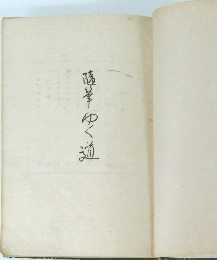 随筆 ゆく道